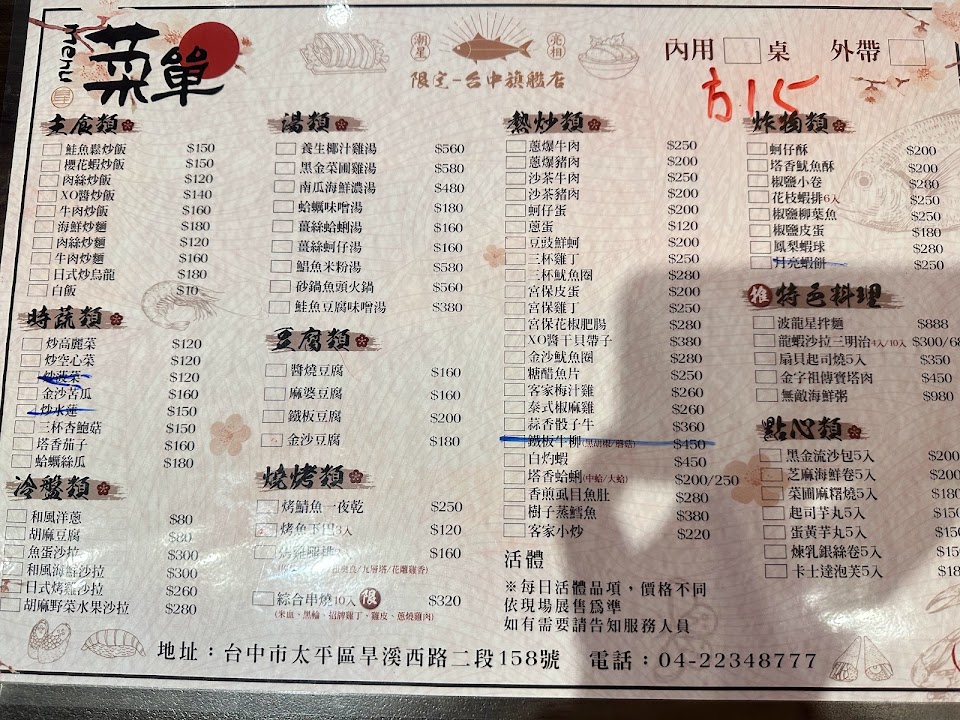 Menu
菜單
潮星
亮相
限定-台中旗艦店
內用 桌 外帶
主食類
鮭魚鬆炒飯 $150
櫻花蝦炒飯 $150
肉絲炒飯 $120
XO醬炒飯 $140
牛肉炒飯 $160
海鮮炒麵 $180
肉絲炒麵 $120
牛肉炒麵 $160
日式炒烏龍 $180
白飯 $10
時蔬類
炒高麗菜 $120
炒空心菜 $120
炒菠菜 $120
金沙苦瓜 $160
炒水蓮 $150
三杯杏鮑菇 $150
塔香茄子 $160
蛤蠣絲瓜 $180
冷盤類
和風洋蔥 $80
胡麻豆腐 $80
魚蛋沙拉 $300
和風海鮮沙拉 $300
日式烤雞沙拉 $260
胡麻野菜水果沙拉 $280
湯類
養生椰汁雞湯 $560
黑金菜圃雞湯 $580
南瓜海鮮濃湯 $480
蛤蠣味噌湯 $180
薑絲蛤蜊湯 $160
薑絲蚵仔湯 $160
鯧魚米粉湯 $580
砂鍋魚頭火鍋 $560
鮭魚豆腐味噌湯 $380
豆腐類
醬燒豆腐 $160
麻婆豆腐 $160
鐵板豆腐 $200
金沙豆腐 $180
燒烤類
烤鯖魚一夜乾 $250
烤魚下巴3入 $120
$160
/九層塔/花雕雞香)
綜合串燒10入 限 $320
(米血、黑輪、招牌雞丁、雞皮、蔥燒雞肉)
熱炒類
蔥爆牛肉 $250
蔥爆豬肉 $200
沙茶牛肉 $250
沙茶豬肉 $200
蚵仔蛋 $200
蔥蛋 $120
豆豉鮮蚵 $200
三杯雞丁 $250
三杯魷魚圈 $280
宮保皮蛋 $200
宮保雞丁 $250
宮保花椒肥腸 $280
XO醬干貝帶子 $380
金沙魷魚圈 $280
糖醋魚片 $250
客家梅汁雞 $260
泰式椒麻雞 $260
蒜香骰子牛 $360
鐵板牛柳(黑胡椒/蘑菇) $450
白灼蝦 $450
塔香蛤蜊(中蛤/大蛤) $200/250
香煎虱目魚肚 $280
樹子蒸鱈魚 $380
客家小炒 $220
活體
※每日活體品項，價格不同
依現場展售為準
如有需要請告知服務人員
炸物類
蚵仔酥 $200
塔香魷魚酥 $200
椒鹽小卷 $280
花枝蝦排6入 $250
椒鹽柳葉魚 $250
椒鹽皮蛋 $180
鳳梨蝦球 $280
月亮蝦餅 $250
推 特色料理
波龍星拌麵 $888
龍蝦沙拉三明治4入/10入 $300/68
扇貝起司燒5入 $350
金字祖傳寶塔肉 $450
無敵海鮮粥 $980
點心類
黑金流沙包5入 $200
芝麻海鮮卷5入 $200
菜圃麻糬燒5入 $180
起司芋丸5入 $150
蛋黃芋丸5入 $150
煉乳銀絲卷5入 $150
卡士達泡芙5入 $18
地址：台中市太平區旱溪西路二段158號 電話：04-22348777